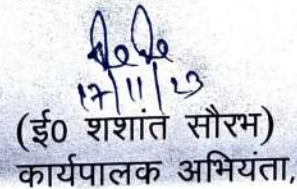 17/11/23
(ई0 शशांत सौरभ)
कार्यपालक अभियंता,